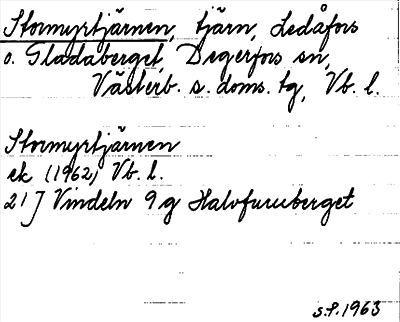 Stormyrtjärnen, tjärn, Ledåfors
o. Gladaberget, Degerfors sn,
Västerb. s. doms. tg, Vb. l.
Stormyrtjärnen
ek (1962) Vb. l.
21 J Vindeln 9 g Halvfuruberget
s.P. 1963